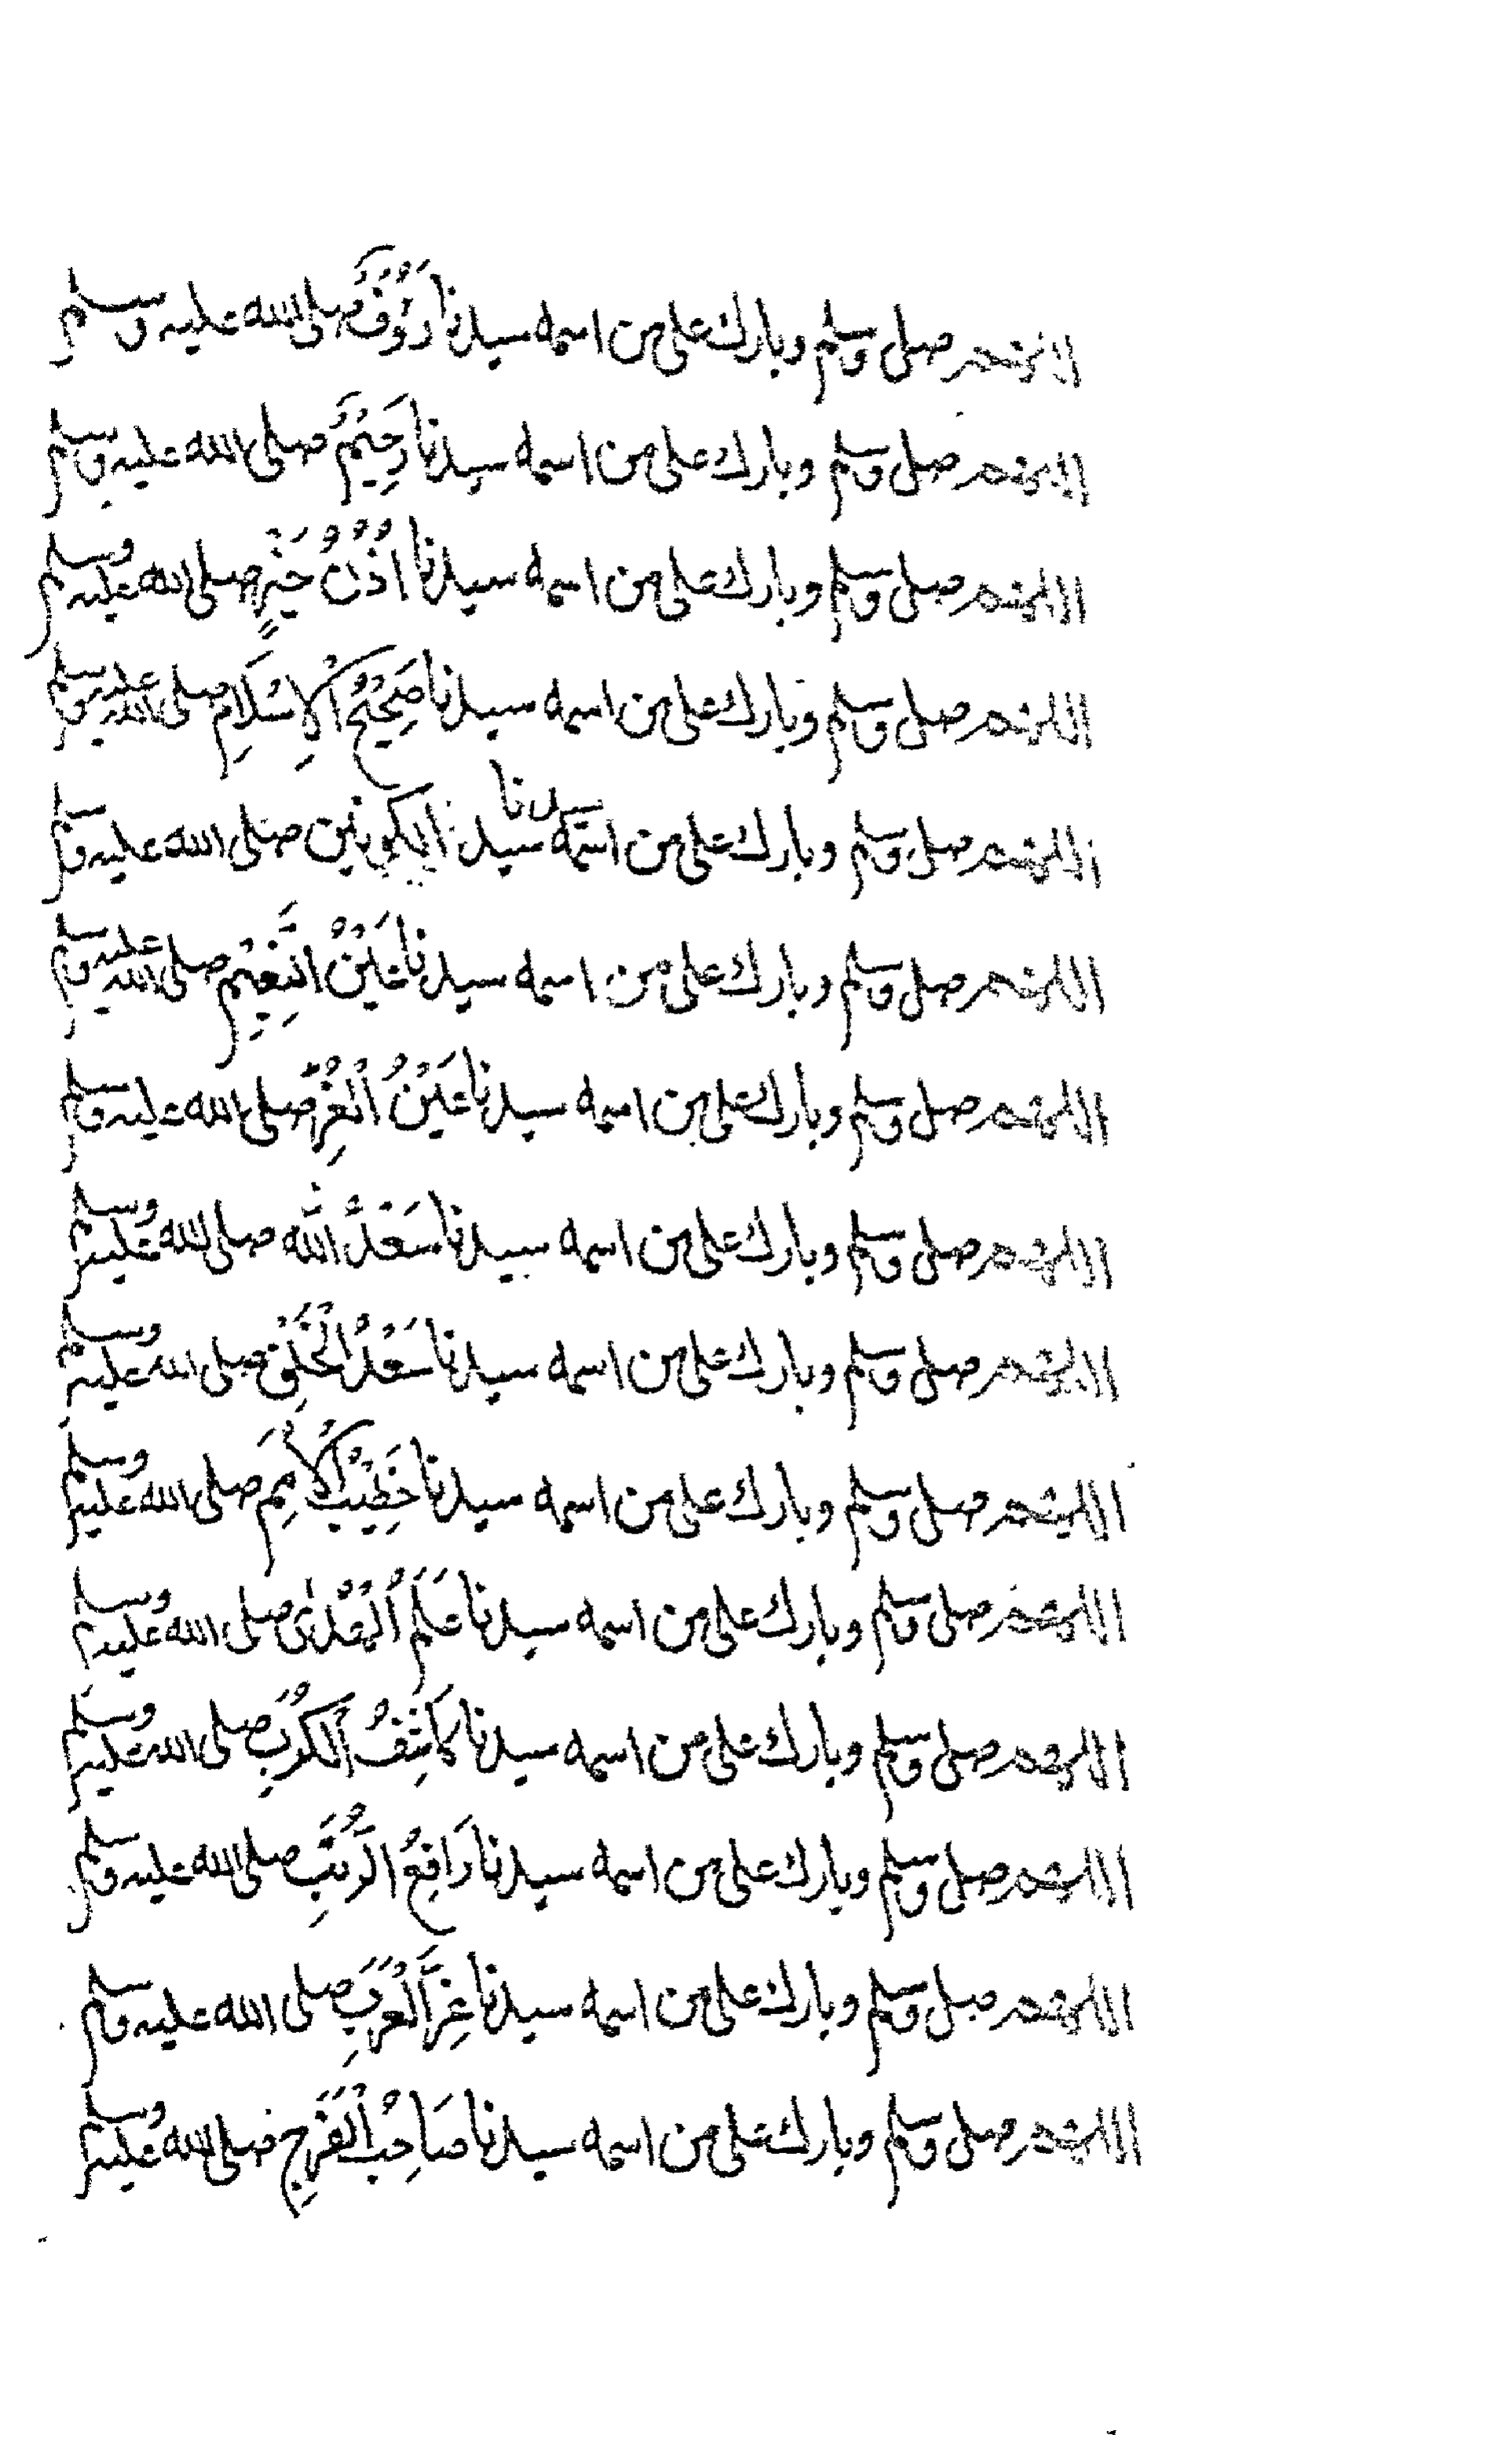 اللهم صل وسلم وبارك على من اسمه سيدنا رَؤُفٌ صلى الله عليه وسلم
اللهم صل وسلم وبارك على من اسمه سيدنا رَحِيْمٌ صلى الله عليه وسلم
اللهم صل وسلم وبارك على من اسمه سيدنا اُذُنُ خَيْرٍ صلى الله عليه وسلم
اللهم صل وسلم وبارك على من اسمه سيدنا صَحِيْحُ الْاِسْلَامِ صلى الله عليه وسلم
اللهم صل وسلم وبارك على من اسمه سيدنا سيد الكونين صلى الله عليه وسلم
اللهم صل وسلم وبارك على من اسمه سيدنا عَيْنُ النَّعِيْمِ صلى الله عليه وسلم
اللهم صل وسلم وبارك على من اسمه سيدنا عَيْنُ الْغُرِّ صلى الله عليه وسلم
اللهم صل وسلم وبارك على من اسمه سيدنا سَعْدُ الله صلى الله عليه وسلم
اللهم صل وسلم وبارك على من اسمه سيدنا سَعْدُ الْخَلْقِ صلى الله عليه وسلم
اللهم صل وسلم وبارك على من اسمه سيدنا خَطِيْبُ الْاُمَمِ صلى الله عليه وسلم
اللهم صل وسلم وبارك على من اسمه سيدنا عَلَمُ الْهُدٰى صلى الله عليه وسلم
اللهم صل وسلم وبارك على من اسمه سيدنا كَاشِفُ الْكُرَبِ صلى الله عليه وسلم
اللهم صل وسلم وبارك على من اسمه سيدنا رَافِعُ الرُّتَبِ صلى الله عليه وسلم
اللهم صل وسلم وبارك على من اسمه سيدنا عِزُّ الْعَرَبِ صلى الله عليه وسلم
اللهم صل وسلم وبارك على من اسمه سيدنا صَاحِبُ الْفَرَجِ صلى الله عليه وسلم